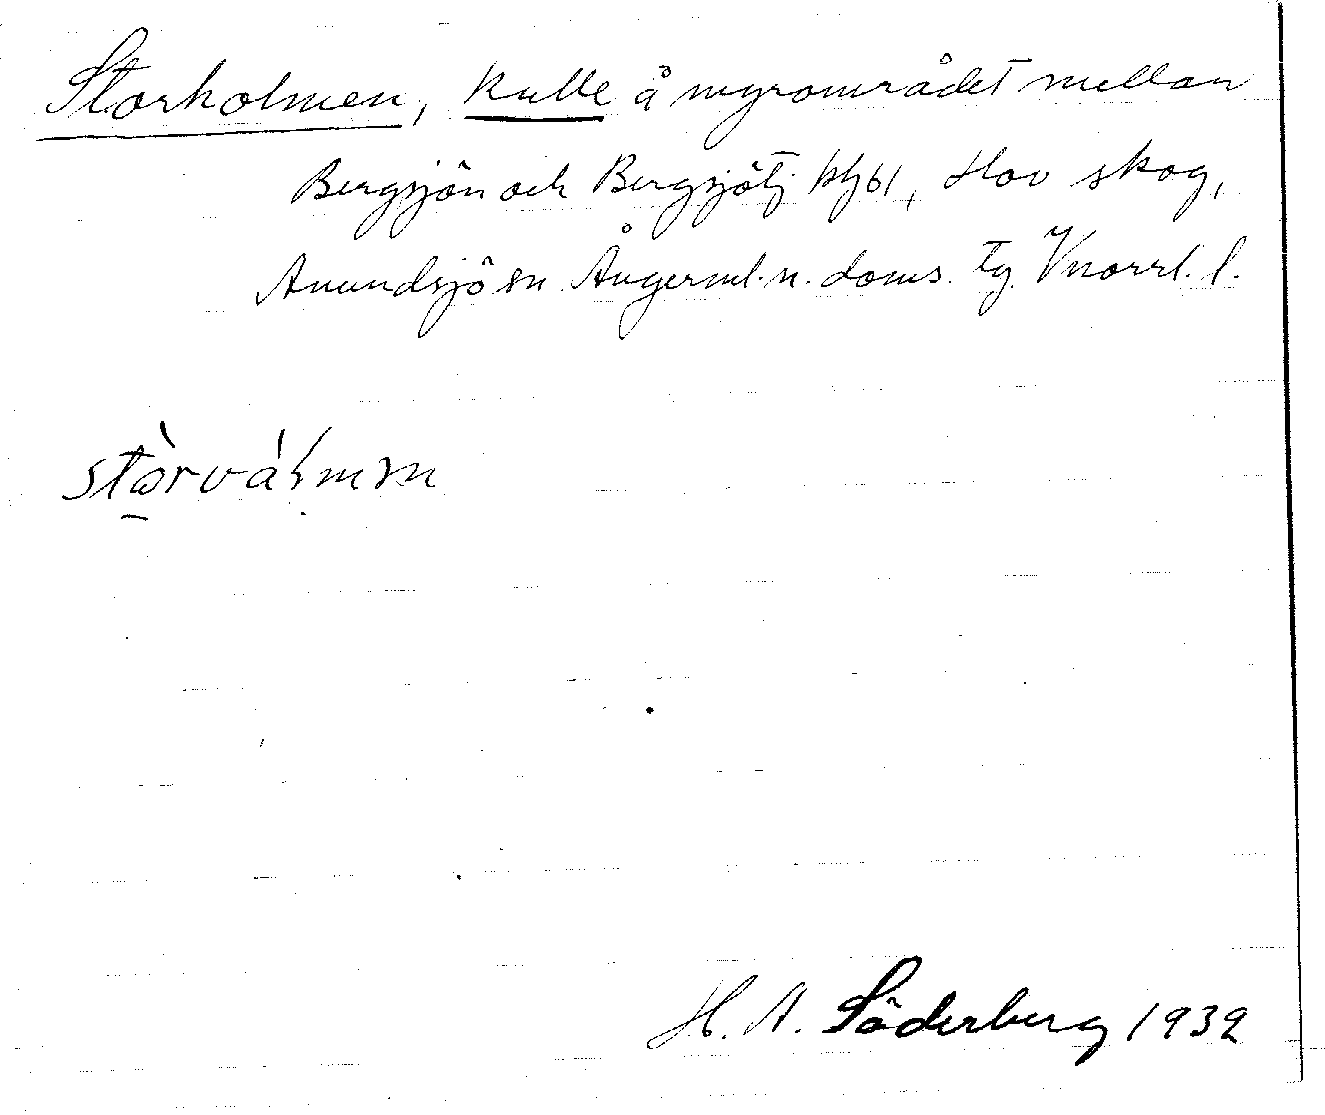 Storholmen, kulle å myrområdet mellan
Bergsjön och Bergsjötj kfj 61, Hov skog,
Anundsjö sn Ångerml. n. doms. tg. Vnorrl. l.
stòrváɫmm
H. A. Söderberg 1932